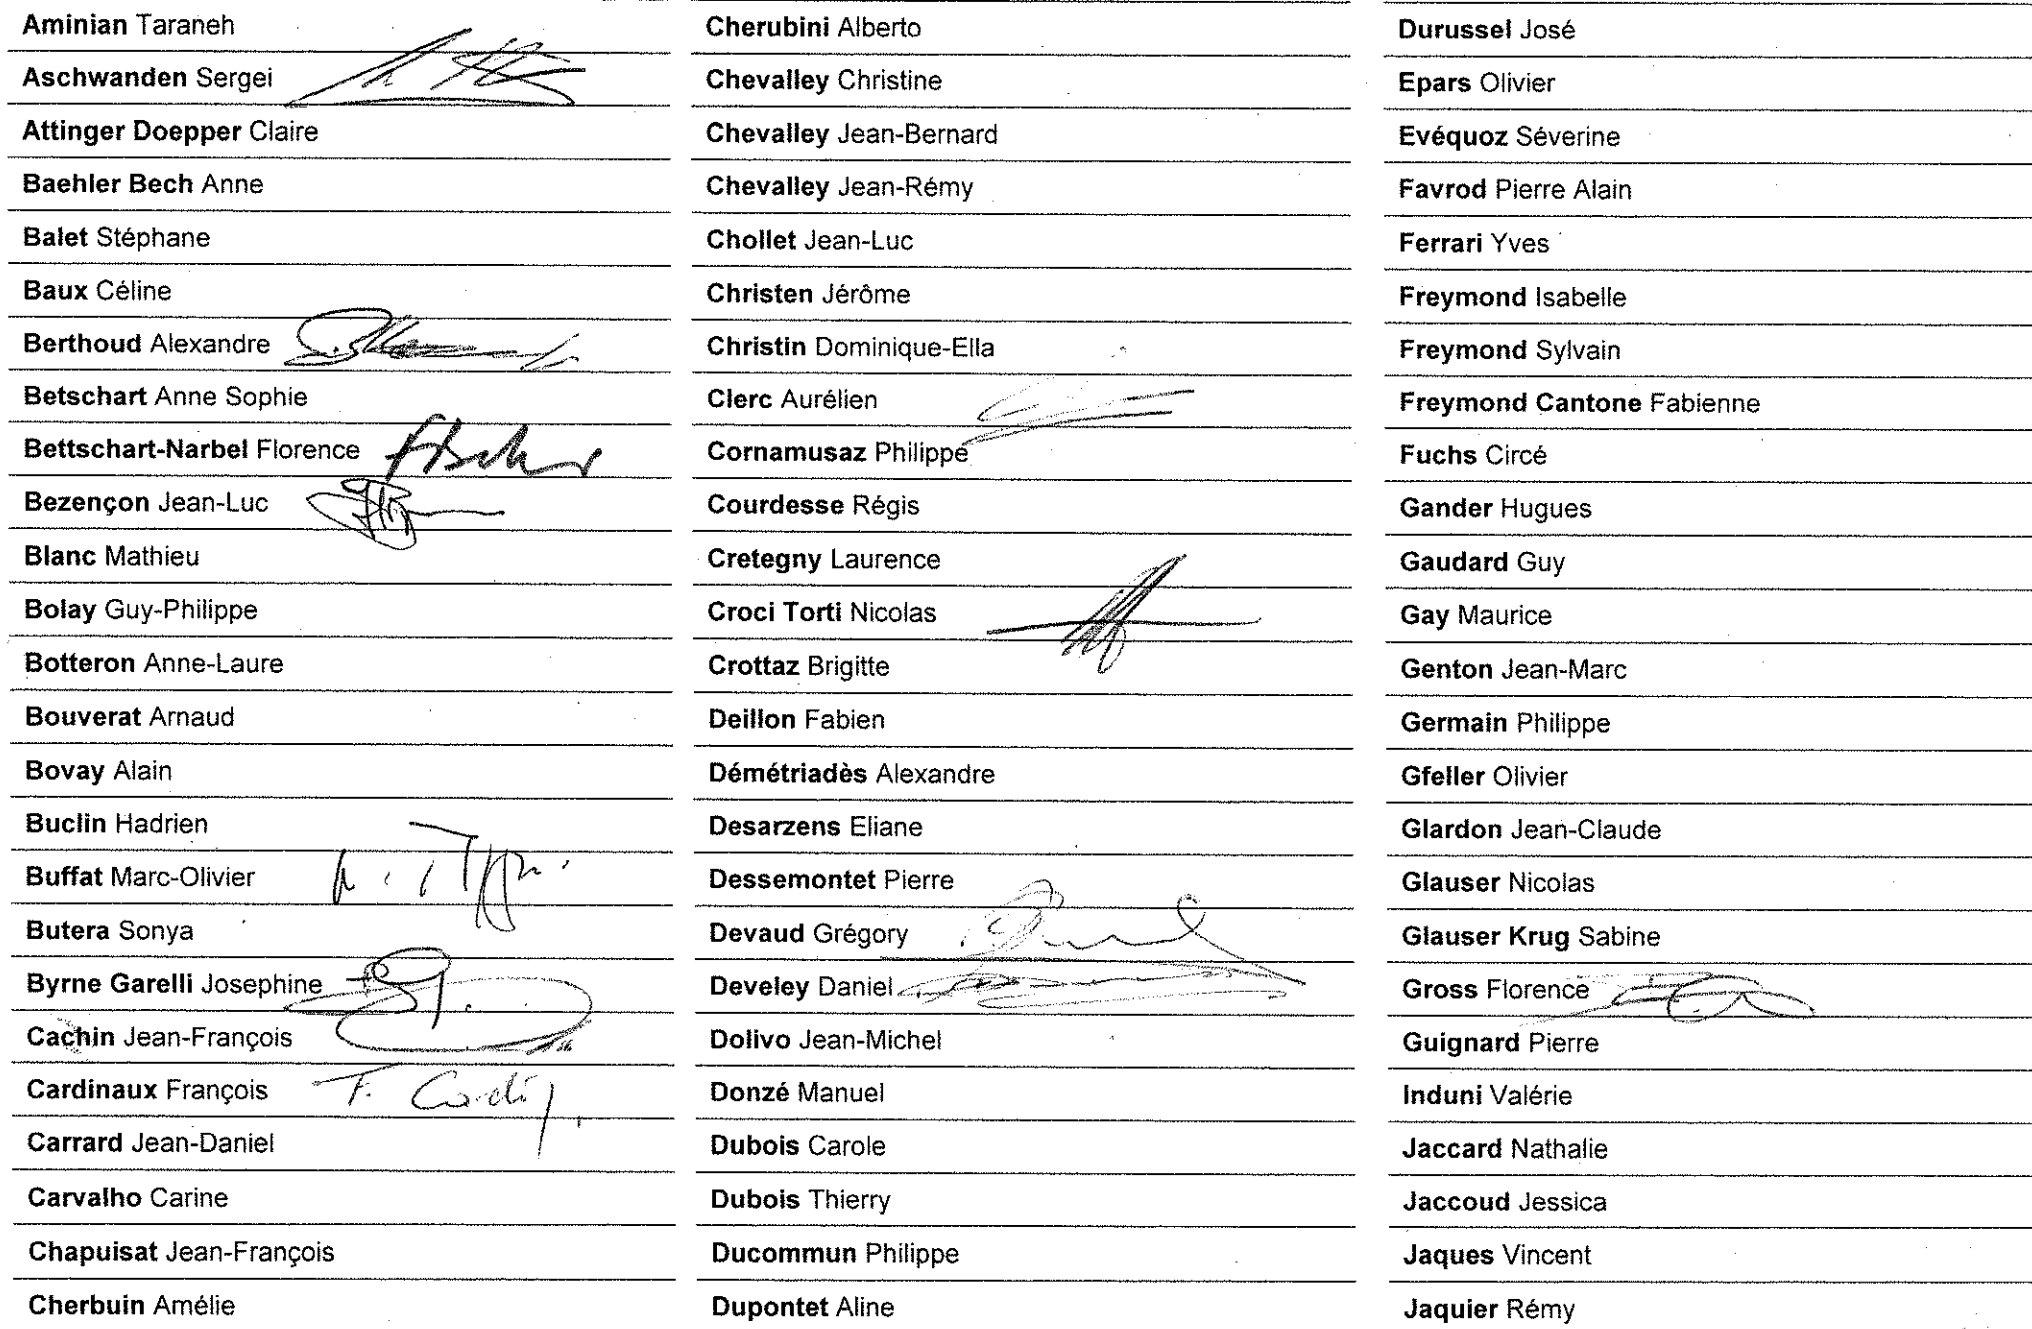 Aminian Taraneh
Aschwanden Sergei
Attinger Doepper Claire
Baehler Bech Anne
Balet Stéphane
Baux Céline
Berthoud Alexandre
Betschart Anne Sophie
Bettschart-Narbel Florence
Bezençon Jean-Luc
Blanc Mathieu
Bolay Guy-Philippe
Botteron Anne-Laure
Bouverat Arnaud
Bovay Alain
Buclin Hadrien
Buffat Marc-Olivier
Butera Sonya
Byrne Garelli Josephine
Cachin Jean-François
Cardinaux François F.
Carrard Jean-Daniel
Carvalho Carine
Chapuisat Jean-François
Cherbuin Amélie
Cherubini Alberto
Chevalley Christine
Chevalley Jean-Bernard
Chevalley Jean-Rémy
Chollet Jean-Luc
Christen Jérôme
Christin Dominique-Ella
Clerc Aurélien
Cornamusaz Philippe
Courdesse Régis
Cretegny Laurence
Croci Torti Nicolas
Crottaz Brigitte
Deillon Fabien
Démétriadès Alexandre
Desarzens Eliane
Dessemontet Pierre
Devaud Grégory
Develey Daniel
Dolivo Jean-Michel
Donzé Manuel
Dubois Carole
Dubois Thierry
Ducommun Philippe
Dupontet Aline
Durussel José
Epars Olivier
Evéquoz Séverine
Favrod Pierre Alain
Ferrari Yves
Freymond Isabelle
Freymond Sylvain
Freymond Cantone Fabienne
Fuchs Circé
Gander Hugues
Gaudard Guy
Gay Maurice
Genton Jean-Marc
Germain Philippe
Gfeller Olivier
Glardon Jean-Claude
Glauser Nicolas
Glauser Krug Sabine
Gross Florence
Guignard Pierre
Induni Valérie
Jaccard Nathalie
Jaccoud Jessica
Jaques Vincent
Jaquier Rémy